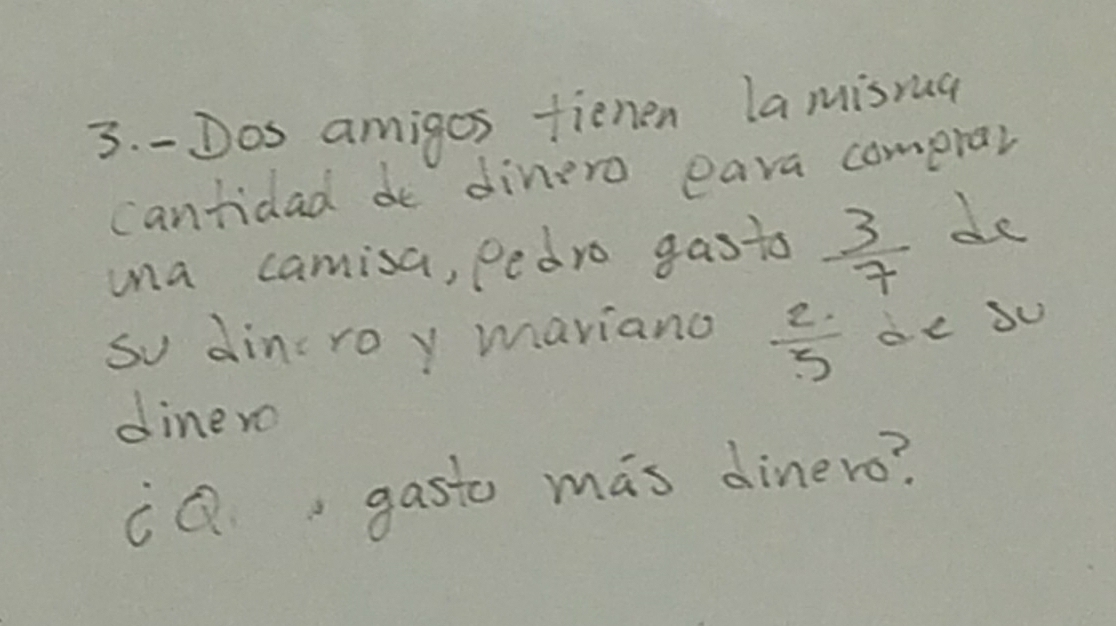 3.- Dos amigos tienen la misma
cantidad de dinero para comprar
una camisa, pedro gasto 3/7 de
su dinero y mariano 2/5 de su
dinero
¿Q gasto más dinero?